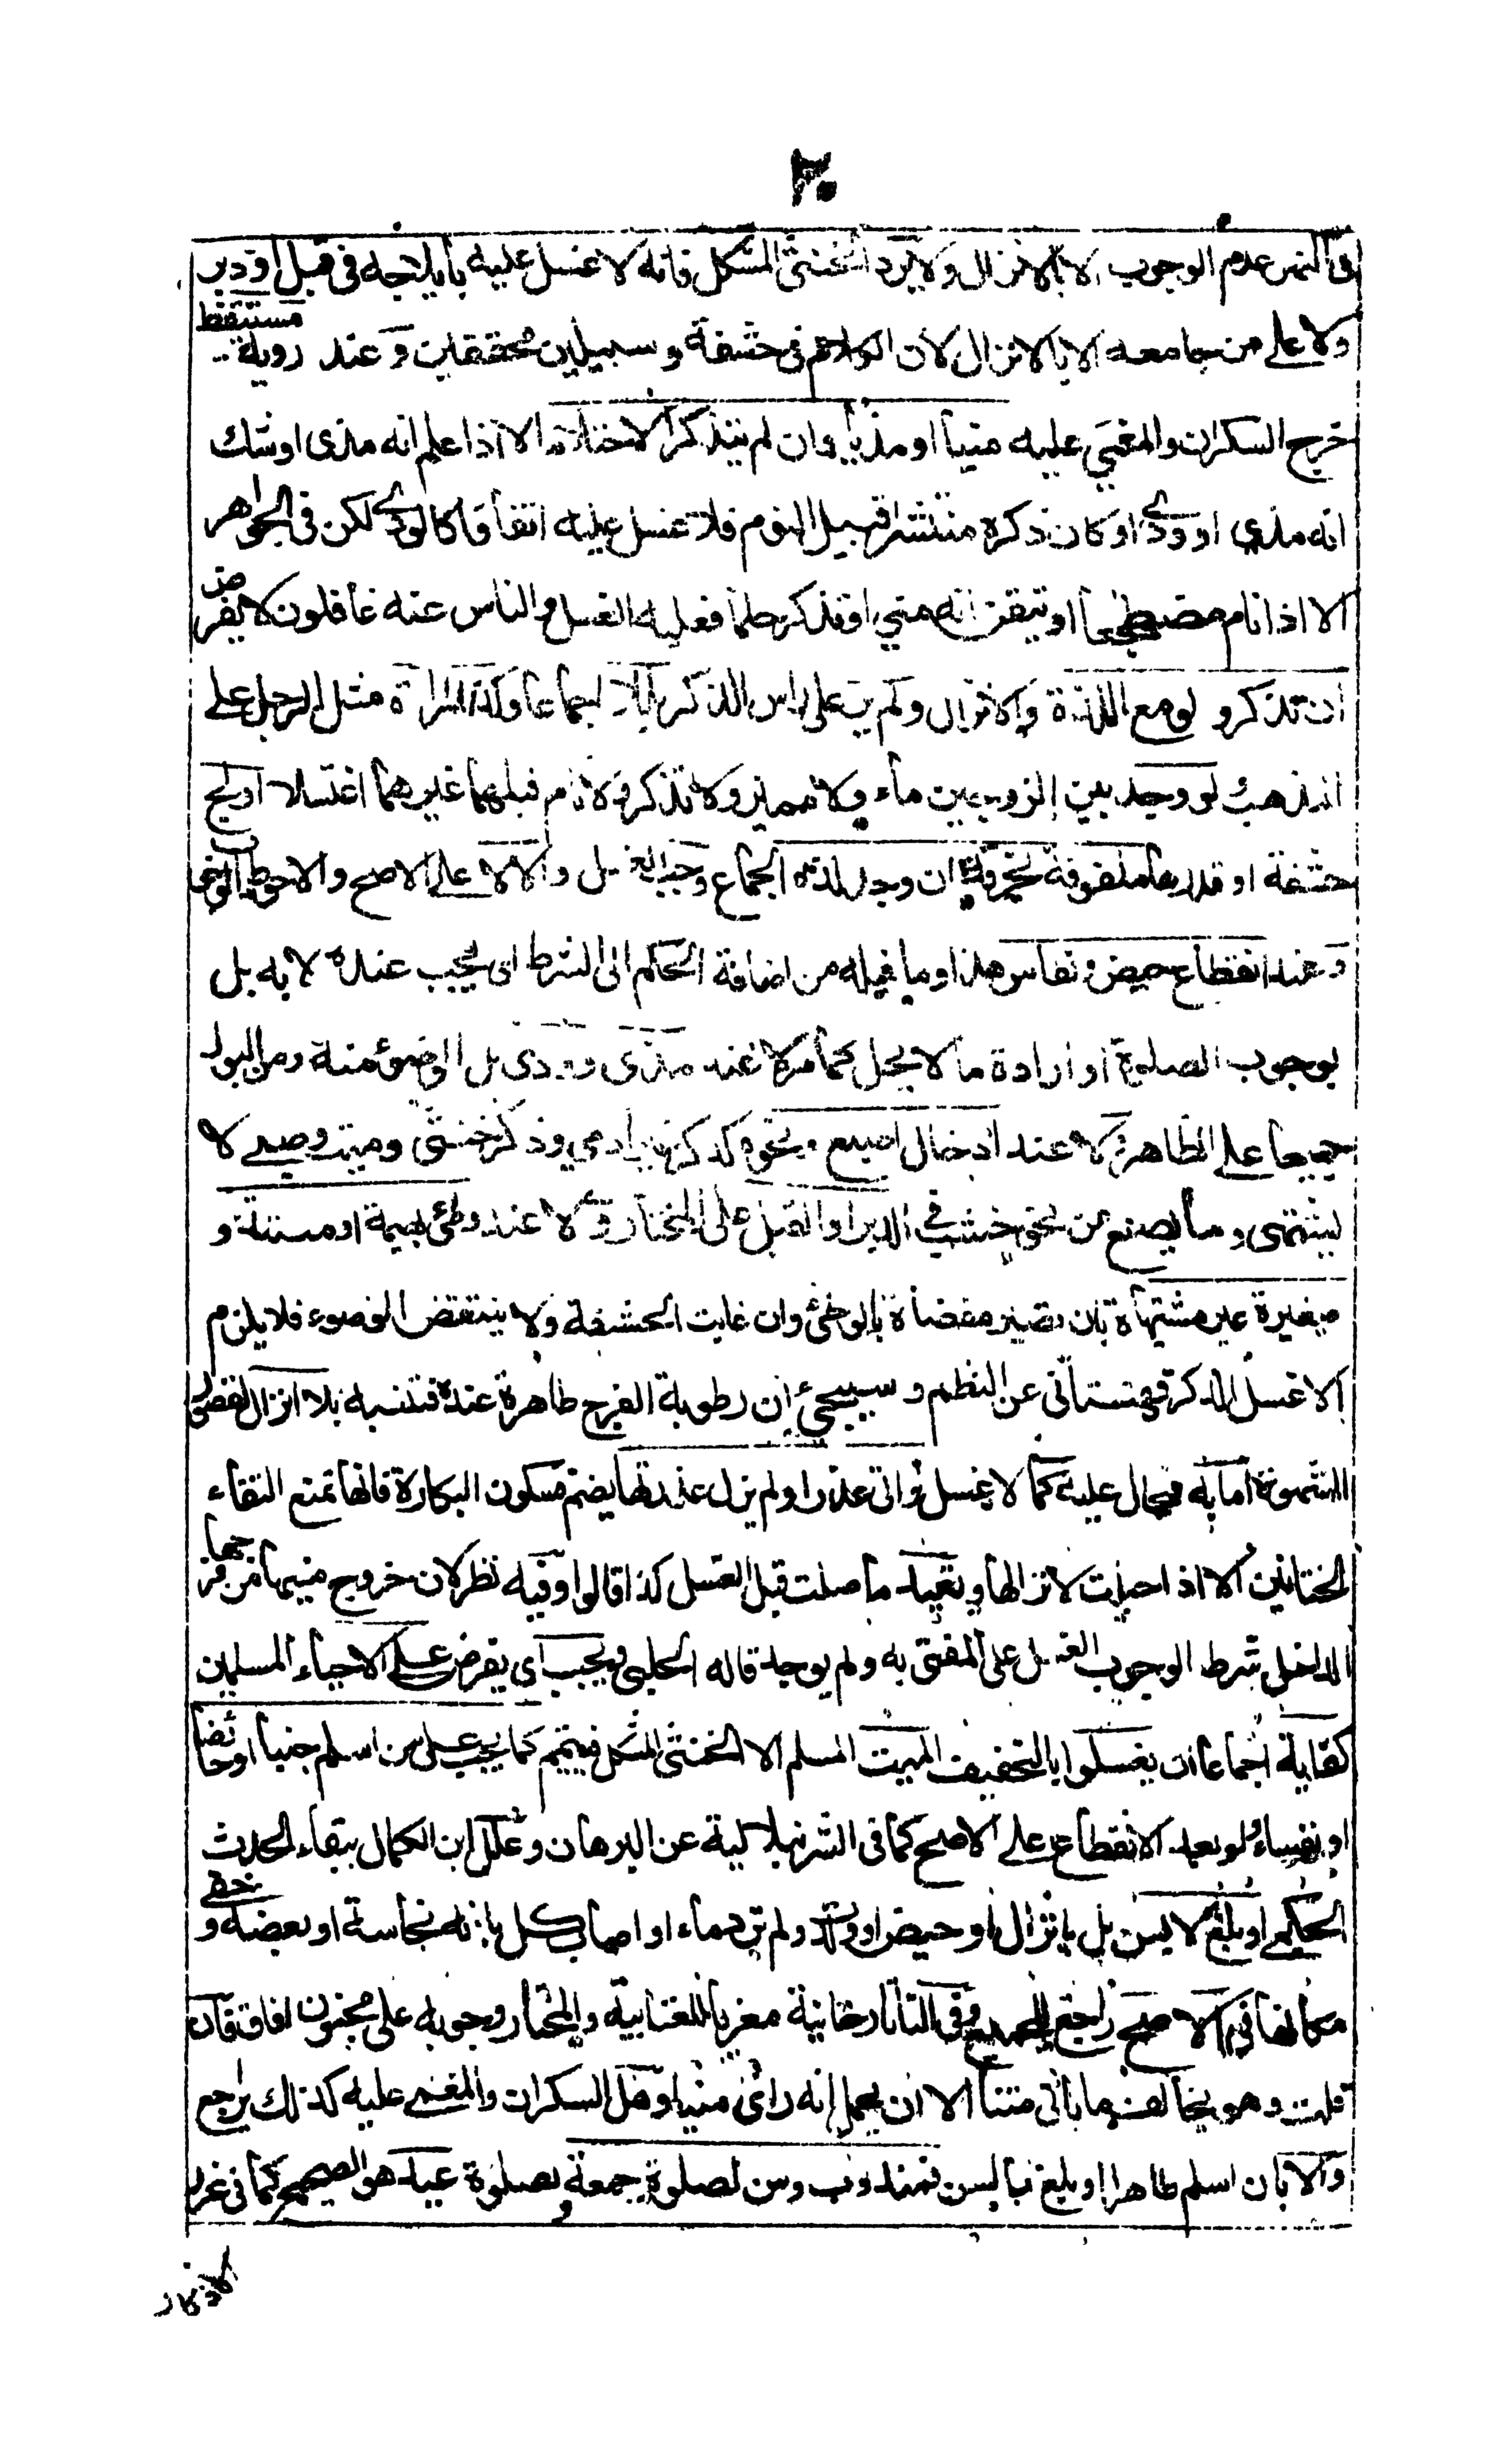 ٣٠
فى النهر عدم الوجوب الا بالانزال ولا يرد الخنثى المشكل فانه لا غسل عليه بايلاجه فى قبل او دبر
ولا على من جامعه الا بالانزال لان الكلام فى حشفة وسبيلين محققين وعند روية مستيقظ
خرج السكران والمغمى عليه منيا او مذيا وان لم يتذكر الاحتلام الا اذا علم انه مذى او شك
انه مذي او ودي او كان ذكره منتشرا قبيل النوم فلا غسل عليه اتفاقا كالودي لكن فى الجواهر
الا اذا نام مضطجعا او تيقن انه مني او تذكر حلما فعليه الغسل والناس عنه غافلون لا يفرض
ان تذكر ولو مع اللذة والانزال ولم ير على راس الذكر بللا اجماعا وكذا المراة مثل الرجل على
المذهب لو وجد بين الزوجين ماء ولا مميز ولا تذكر ولا نام قبلهما غيرهما اغتسلا اولج
حشفة او قدرها ملفوفة بخرقة ان وجد لذة الجماع وجب الغسل والا لا على الاصح والاحوط الوجوب
وعند انقطاع حيض ونفاس هذا وما قبله من اضافة الحكم الى الشرط اى يجب عنده لا به بل
بوجوب الصلوة او ارادة ما لا يحل كما مر لا عند مذى وودى بل الوضوء منه ومن البول
جميعا على الظاهر ولا عند ادخال اصبع ونحوه كذكر غير ادمي وذكر خنثى وميت وصبي لا
يشتهى وما يصنع من نحو خشب فى الدبر او القبل على المختار ولا عند وطئ بهيمة او ميتة و
صغيرة غير مشتهاة بان تصير مفضاة بالوطئ وان غابت الحشفة ولا ينتقض الوضوء فلا يلزم
الا غسل الذكر قهستانى عن النظم وسيجيء ان رطوبة الفرج طاهرة عنده فتنبه بلا انزال لقصور
الشهوة اما به فيحال عليه كما لا غسل لو اتى عذراء ولم يزل عذرتها بضم فسكون البكارة فانها تمنع التقاء
الختانين الا اذا حبلت لانزالها وتعيد ما صلت قبل الغسل كذا قالوا وفيه نظر لان خروج منيها من فرجها
الداخل شرط الوجوب الغسل على المفتى به ولم يوجد قاله الحلبى ويجب اى يفرض على الاحياء المسلمين
كفاية اجماعا ان يغسلوا بالتخفيف الميت المسلم الا الخنثى المشكل فييمم كما يجب على من اسلم جنبا او حائضا
او نفساء ولو بعد الانقطاع على الاصح كما فى الشرنبلالية عن البرهان وعلل ابن الكمال ببقاء الحدث
الحكمي او بلغ لا بسن بل بانزال او حيض او ولدت ولم تر دماء او اصاب كل بدنه نجاسة او بعضه وخفي
مكانها فى الاصح راجع للجميع وفى التاتارخانية معزيا للعتابية والمختار وجوبه على مجنون افاق قال
قلت وهو يخالف ما ياتى متنا الا ان يحمل انه راى منيا وهل السكران والمغمى عليه كذلك يراجع
والا بان اسلم طاهرا او بلغ بالسن فمندوب وسن لصلوة جمعة ولصلوة عيد هو الصحيح كما فى غرر
الاذكار